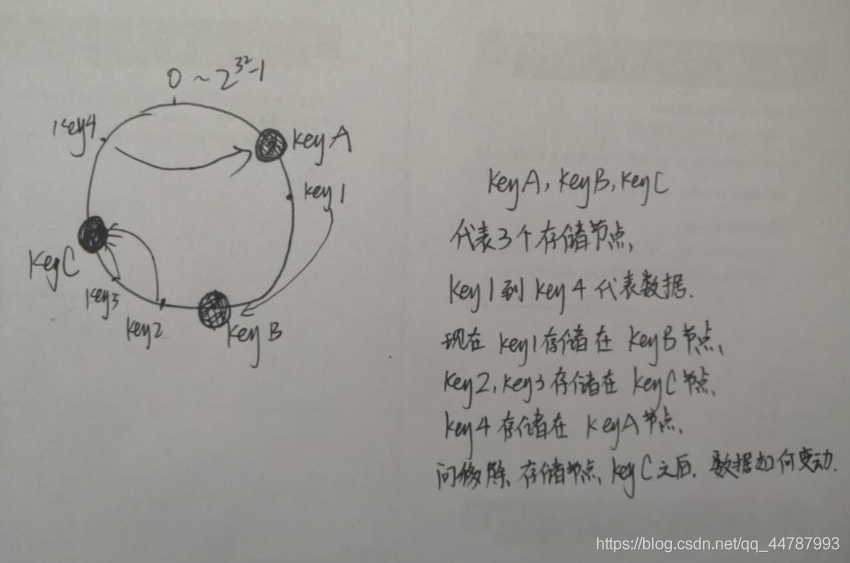 0 ~ 2^32-1
key4
keyA
key1
keyC
key3
key2
keyB
keyA, keyB, keyC
代表3个存储节点,
key1到key4代表数据.
现在key1存储在keyB节点,
key2, key3存储在keyC节点,
key4存储在keyA节点,
问移除存储节点keyC之后, 数据如何变动.
https://blog.csdn.net/qq_44787993